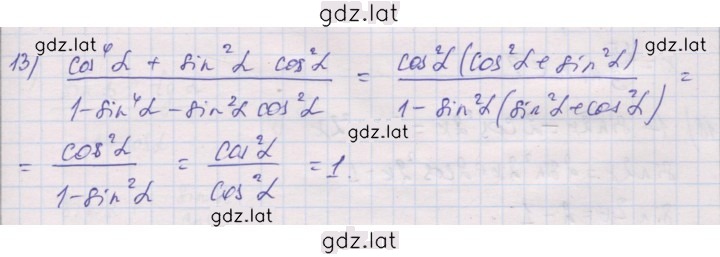 gdz.lat
gdz.lat
13) (cos⁴α + sin²α cos²α)/(1-sin⁴α - sin²α cos²α) = (cos²α(cos²α+sin²α))/(1-sin²α(sin²α+cos²α)) =
gdz.lat
= cos²α/(1-sin²α) = cos²α/cos²α = 1.
gdz.lat
gdz.lat
gdz.lat